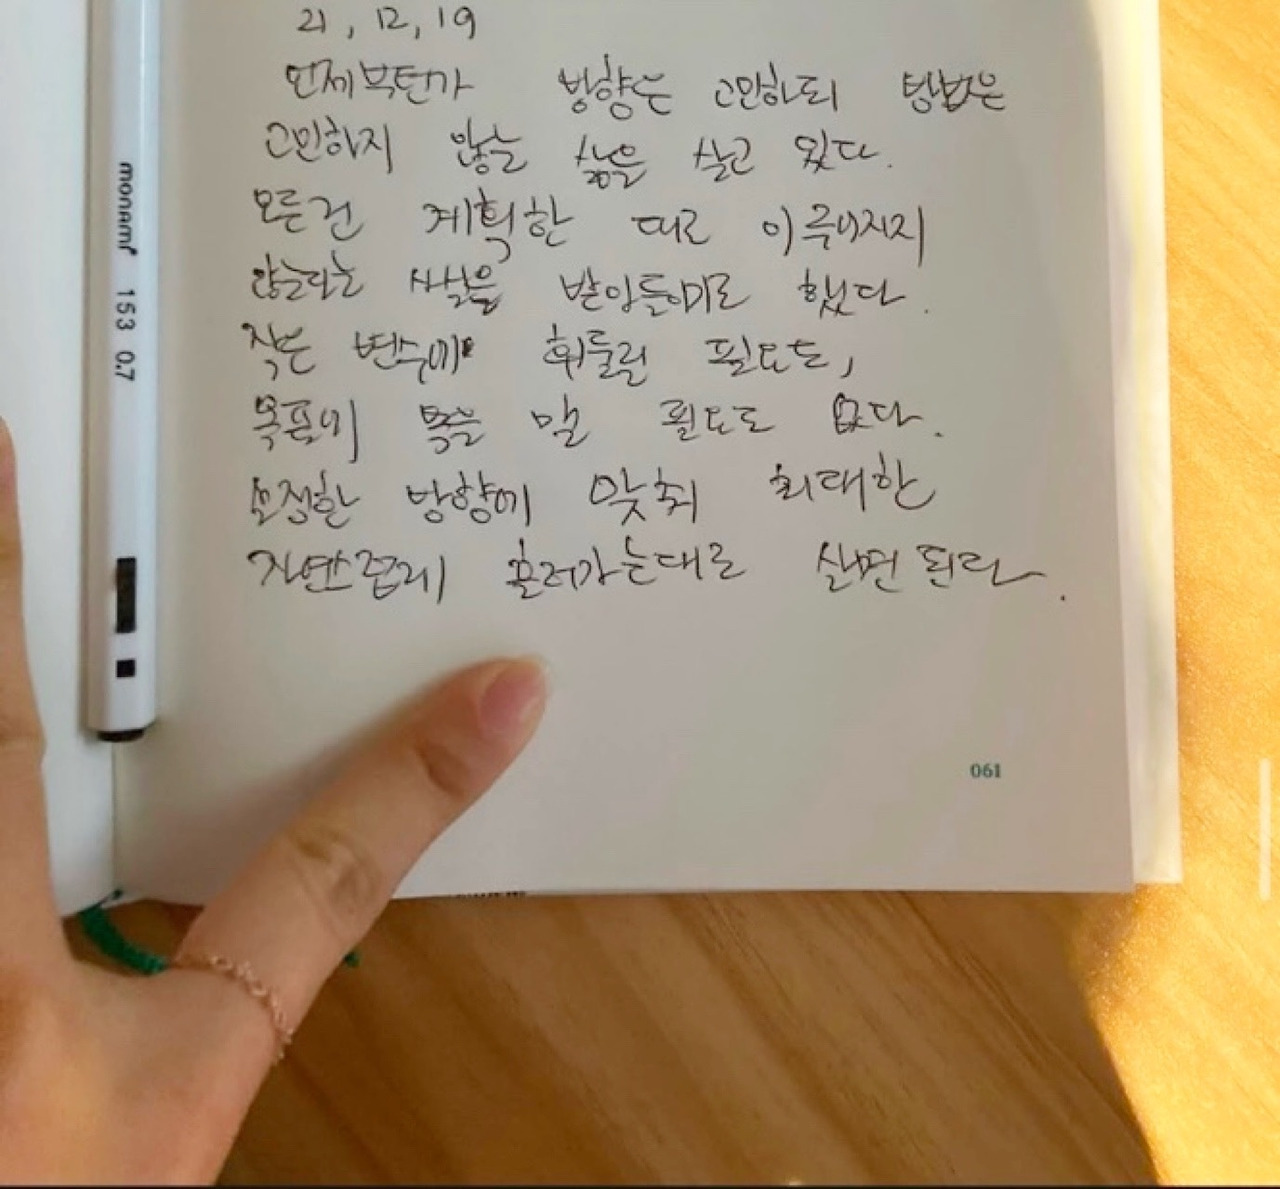 21, 12, 19
언제부턴가 방향은 고민하되 방법은
고민하지 않는 삶을 살고 있다.
모든건 계획한 대로 이루어지지
않는다는 사실을 받아들이기로 했다.
작은 변수에 휘둘릴 필요도,
목표에 목을 맬 필요도 없다.
설정한 방향에 맞춰 최대한
자연스럽게 흘러가는대로 살면 된다.
monami 153 0.7
061